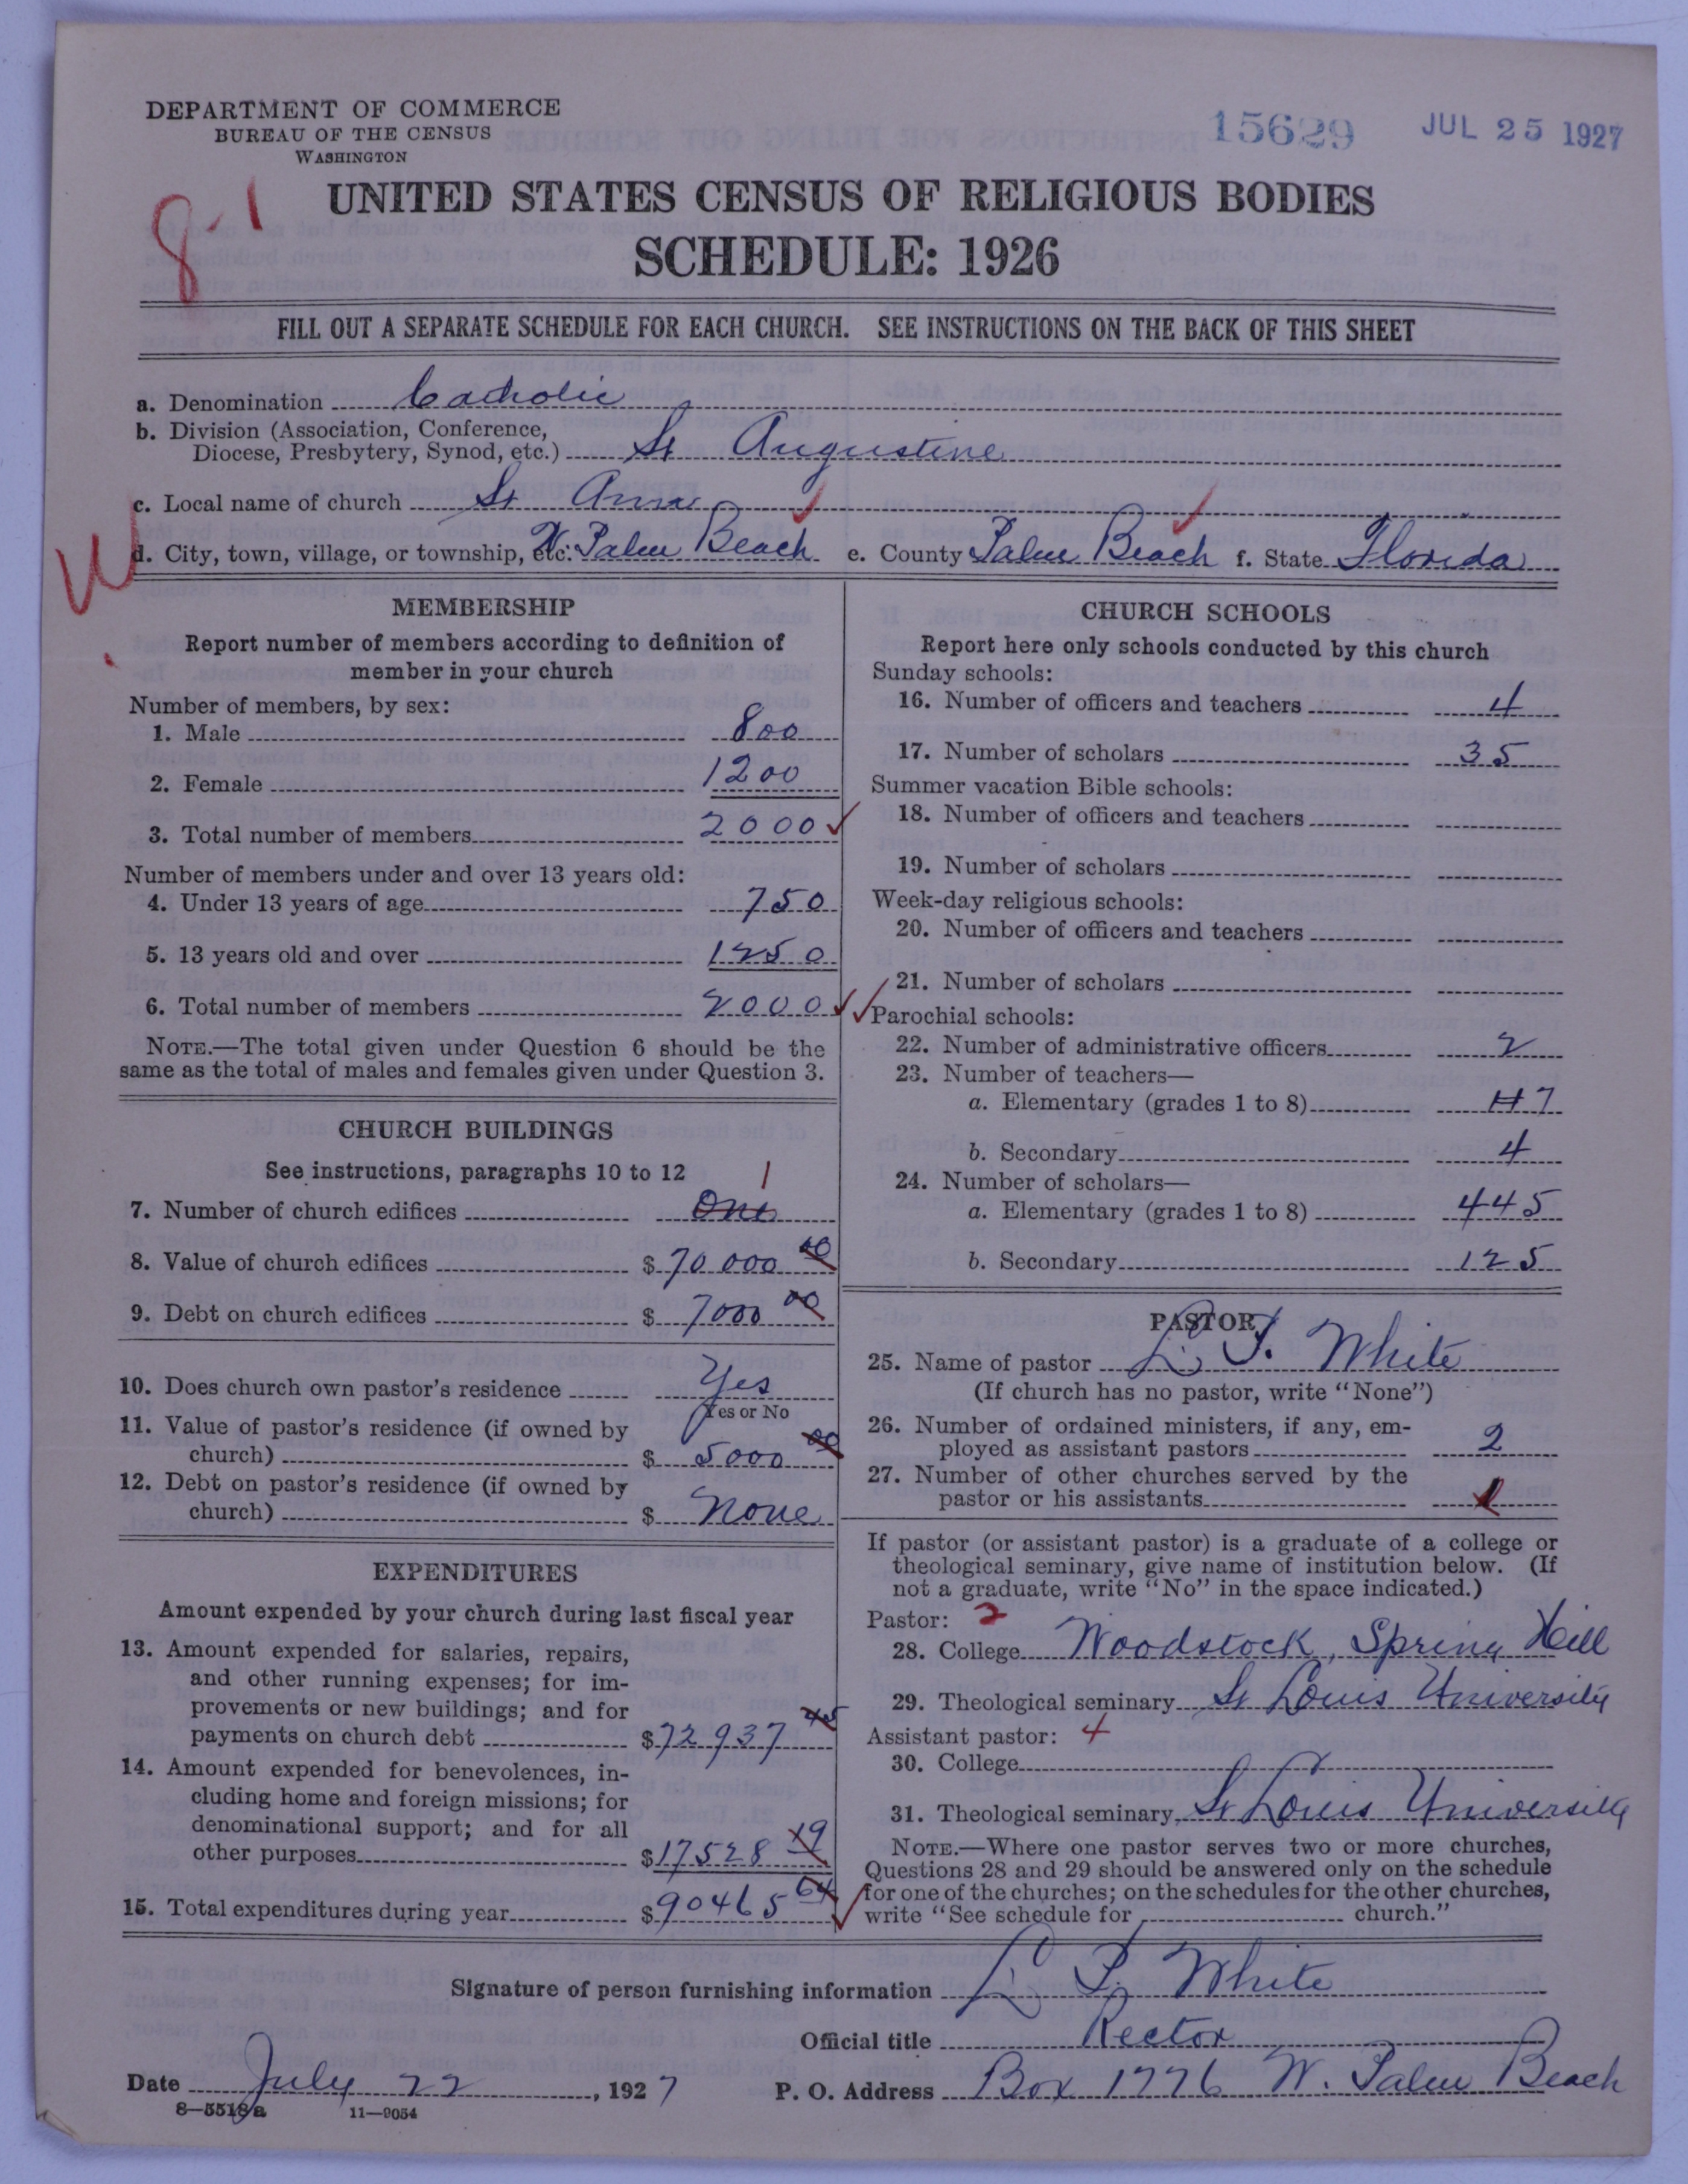 DEPARTMENT OF COMMERCE
BUREAU OF THE CENSUS
WASHINGTON
15629 JUL 25 1927
8-1
UNITED STATES CENSUS OF RELIGIOUS BODIES
SCHEDULE: 1926
FILL OUT A SEPARATE SCHEDULE FOR EACH CHURCH. SEE INSTRUCTIONS ON THE BACK OF THIS SHEET
a. Denomination Catholic
b. Division (Association, Conference,
Diocese, Presbytery, Synod, etc.) St Augustine
c. Local name of church St Anns
W
d. City, town, village, or township, etc. W. Palm Beach e. County Palm Beach f. State Florida
MEMBERSHIP
Report number of members according to definition of
member in your church
Number of members, by sex:
1. Male 800
2. Female 1200
3. Total number of members 2000
Number of members under and over 13 years old:
4. Under 13 years of age 750
5. 13 years old and over 1250
6. Total number of members 2000
NOTE.—The total given under Question 6 should be the
same as the total of males and females given under Question 3.
CHURCH BUILDINGS
See instructions, paragraphs 10 to 12
1
7. Number of church edifices One
8. Value of church edifices $ 70 000 00
9. Debt on church edifices $ 7000 00
10. Does church own pastor's residence Yes
Yes or No
11. Value of pastor's residence (if owned by
church) $ 5000 00
12. Debt on pastor's residence (if owned by
church) $ None
EXPENDITURES
Amount expended by your church during last fiscal year
13. Amount expended for salaries, repairs,
and other running expenses; for im-
provements or new buildings; and for
payments on church debt $72 937 45
14. Amount expended for benevolences, in-
cluding home and foreign missions; for
denominational support; and for all
other purposes $17528 19
15. Total expenditures during year $90465 64
CHURCH SCHOOLS
Report here only schools conducted by this church
Sunday schools:
16. Number of officers and teachers 4
17. Number of scholars 35
Summer vacation Bible schools:
18. Number of officers and teachers
19. Number of scholars
Week-day religious schools:
20. Number of officers and teachers
21. Number of scholars
Parochial schools:
22. Number of administrative officers 2
23. Number of teachers—
a. Elementary (grades 1 to 8) 7
b. Secondary 4
24. Number of scholars—
a. Elementary (grades 1 to 8) 445
b. Secondary 125
PASTOR
25. Name of pastor L. J. White
(If church has no pastor, write "None")
26. Number of ordained ministers, if any, em-
ployed as assistant pastors 2
27. Number of other churches served by the
pastor or his assistants 1
If pastor (or assistant pastor) is a graduate of a college or
theological seminary, give name of institution below. (If
not a graduate, write "No" in the space indicated.)
Pastor: 2
28. College Woodstock, Spring Hill
29. Theological seminary St Louis University
Assistant pastor: 4
30. College
31. Theological seminary St Louis University
NOTE.—Where one pastor serves two or more churches,
Questions 28 and 29 should be answered only on the schedule
for one of the churches; on the schedules for the other churches,
write "See schedule for church."
Signature of person furnishing information L. J. White
Official title Rector
Date July 22, 1927 P. O. Address Box 1776 W. Palm Beach
8—5518a 11—9054